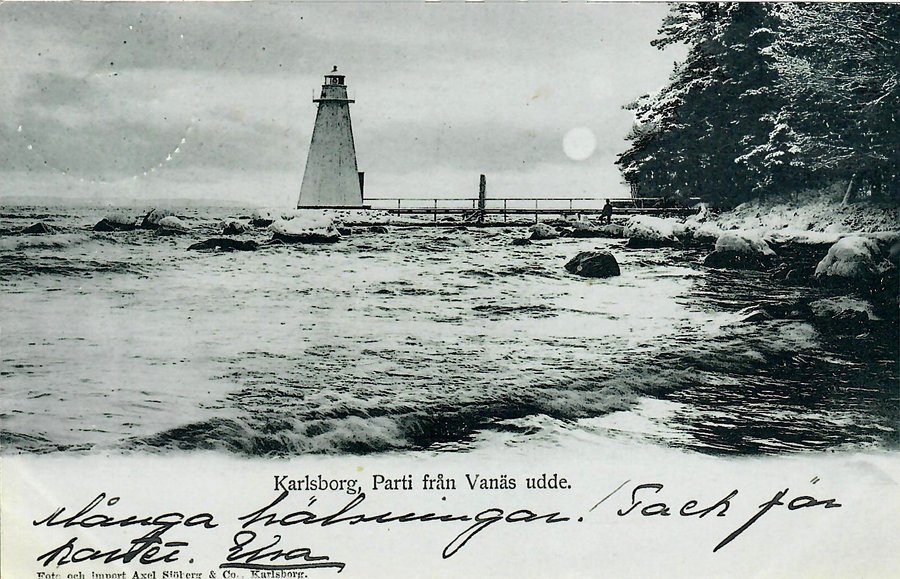 Karlsborg, Parti från Vanäs udde.
Många hälsningar! Tack för
kortet. Elsa
Foto och import Axel Sjöberg & Co., Karlsborg.